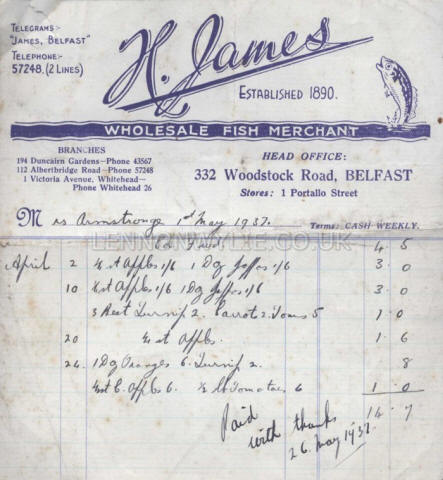 TELEGRAMS:-
"JAMES, BELFAST"
TELEPHONE:-
57248. (2 LINES)
H. James
ESTABLISHED 1890.
WHOLESALE FISH MERCHANT
BRANCHES
194 Duncairn Gardens—Phone 43567
112 Albertbridge Road—Phone 57248
1 Victoria Avenue, Whitehead—
Phone Whitehead 26
HEAD OFFICE:
332 Woodstock Road, BELFAST
Stores: 1 Portallo Street
Mrs Armstronge 1st May 1937.
Terms: CASH WEEKLY.
LENNONWYLIE.CO.UK
4 5
April 2 ½ st Apples 1/6 1 Dz Jaffas 1/6 3 . 0
10 ½ st Apples 1/6 1 Dz Jaffas 1/6 3 . 0
3 Beet Turnip 2. Carrot 2. Toms 5 1 . 0
20 ½ st Apples. 1 . 6
26 1 Dz Oranges 6. Turnip 2. 8
Apples 6. ½ lb Tomatoes 6 1 . 0
14 . 7
Paid
with thanks
26 May 1937.